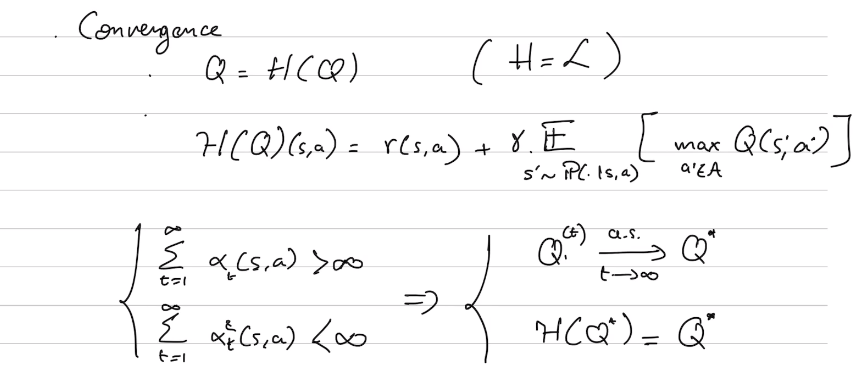 . Convergence
. Q = H(Q) (H = L)
. H(Q)(s,a) = r(s,a) + γ. 𝔼_{s'~ℙ(.|s,a)} [ max_{a'∈A} Q(s',a') ]
{ ∑_{t=1}^{∞} α_t(s,a) > ∞ ⇒ { Q^{(t)} \xrightarrow[t→∞]{a.s.} Q*
∑_{t=1}^{∞} α_t^2(s,a) < ∞ H(Q*) = Q*